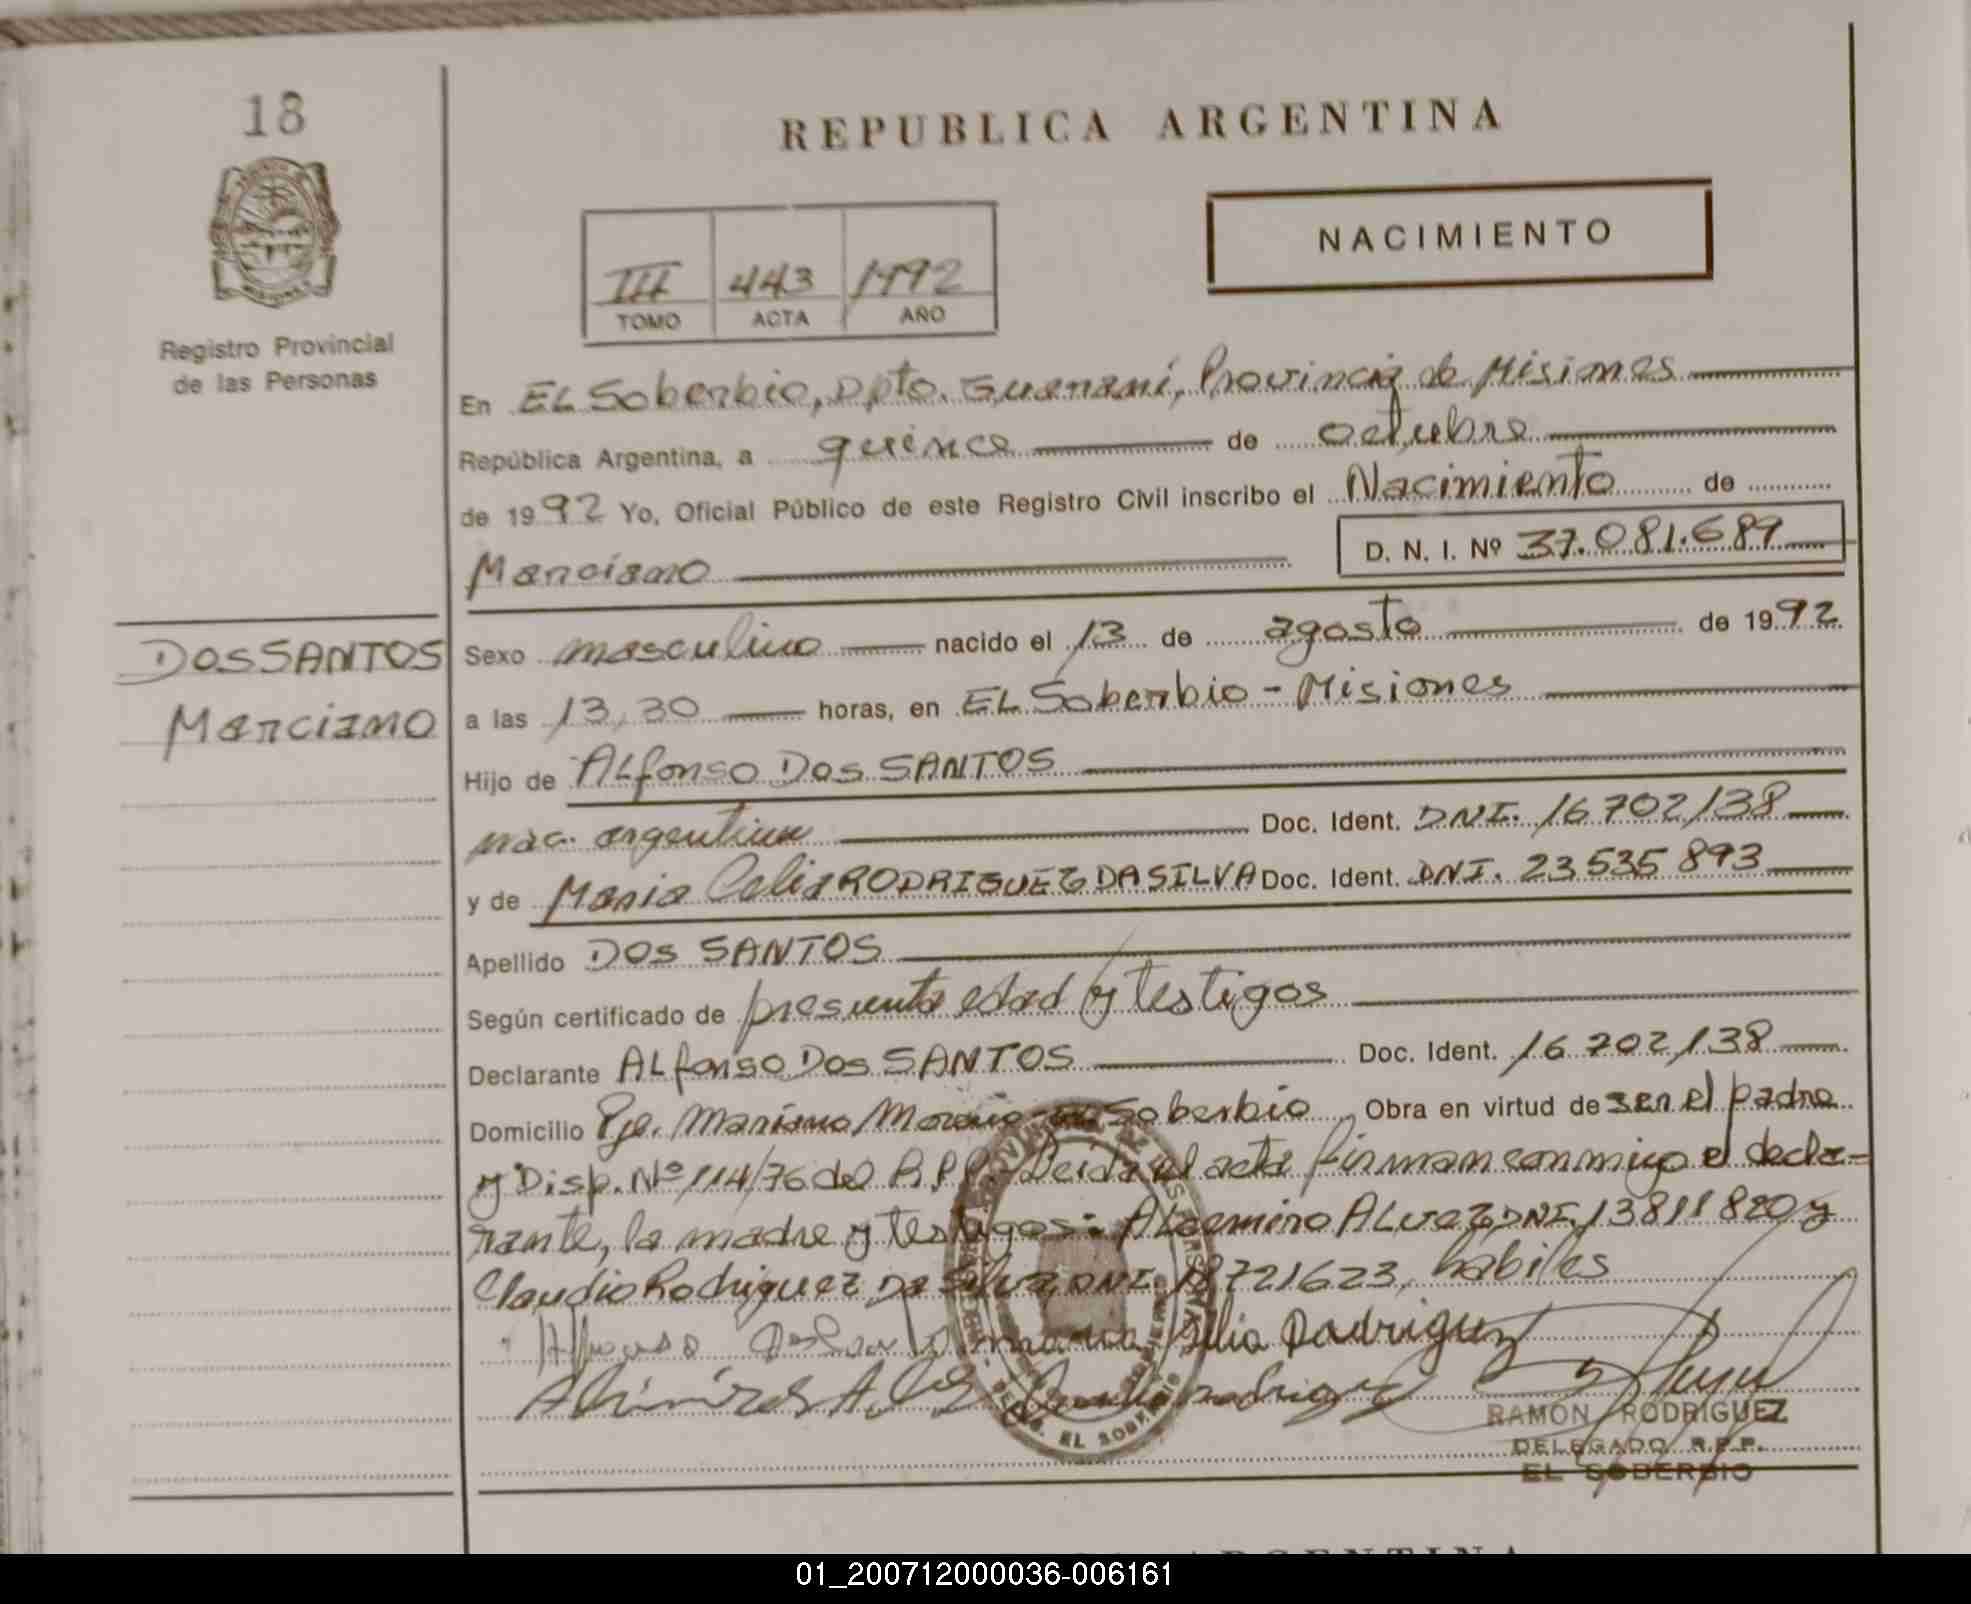 18
REPUBLICA ARGENTINA
NACIMIENTO
III 443 1992
TOMO ACTA AÑO
Registro Provincial
de las Personas
En EL Soberbio, Dpto. Guaraní, Provincia de Misiones
República Argentina, a quince de octubre
de 1992 Yo, Oficial Público de este Registro Civil inscribo el Nacimiento de
Marciano D. N. I. Nº 37.081.689
DOS SANTOS
Marciano
Sexo masculino nacido el 13 de agosto de 1992
a las 13,30 horas, en EL Soberbio - Misiones
Hijo de ALfonso Dos SANTOS
nac. argentina Doc. Ident. DNI. 16 702,138
y de Maria Celia RODRIGUEZ DA SILVA Doc. Ident. DNI. 23 535 893
Apellido DOS SANTOS
Según certificado de presunta edad y testigos
Declarante ALfonso Dos SANTOS Doc. Ident. 16 702,138
Domicilio Pje. Mariano Moreno - EL Soberbio Obra en virtud de ser el padre
y Disp. Nº 114/76 del R.P.P. Leida el acta firman conmigo el decla-
rante, la madre y testigos: ALVEZ DNI. 13811820 y
Claudio Rodriguez Da Silva, DNI. 18721623, habiles
maria Rodriguez
RAMON RODRIGUEZ
DELEGADO R.P.P.
EL SOBERBIO
DELEG. EL SOBERBIO
ARGENTINA
01_200712000036-006161